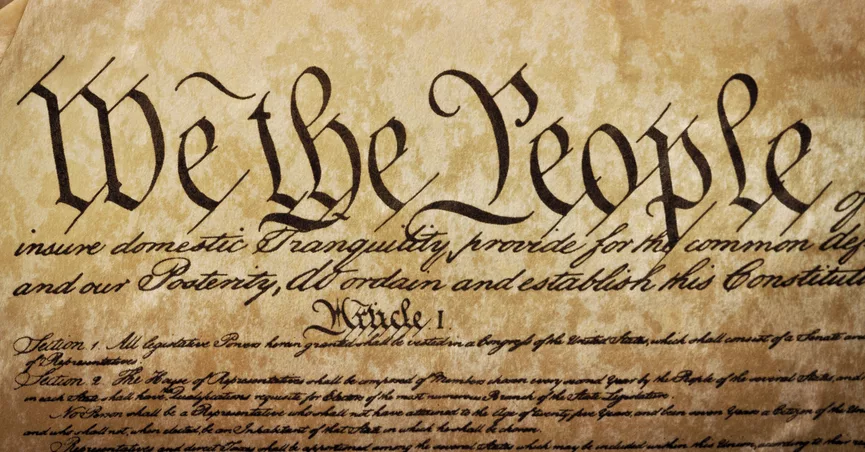 We the People of
insure domestic Tranquility, provide for the common def
and our Posterity, do ordain and establish this Constituti
Article I.
Section 1. All legislative Powers herein granted shall be vested in a Congress of the United States, which shall consist of a Senate an
of Representatives.
Section 2. The House of Representatives shall be composed of Members chosen every second Year by the People of the several States, and
in each State shall have Qualifications requisite for Electors of the most numerous Branch of the State Legislature.
No Person shall be a Representative who shall not have attained to the Age of twenty five Years, and been seven Years a Citizen of the Un
and who shall not, when elected, be an Inhabitant of that State in which he shall be chosen.
Representatives and direct Taxes shall be apportioned among the several States which may be included within this Union, according to their